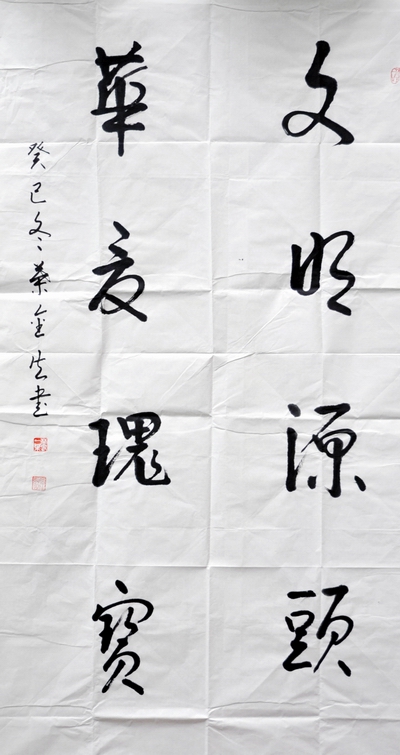 文明源頭
華夏瑰寶
癸巳冬葉金生書